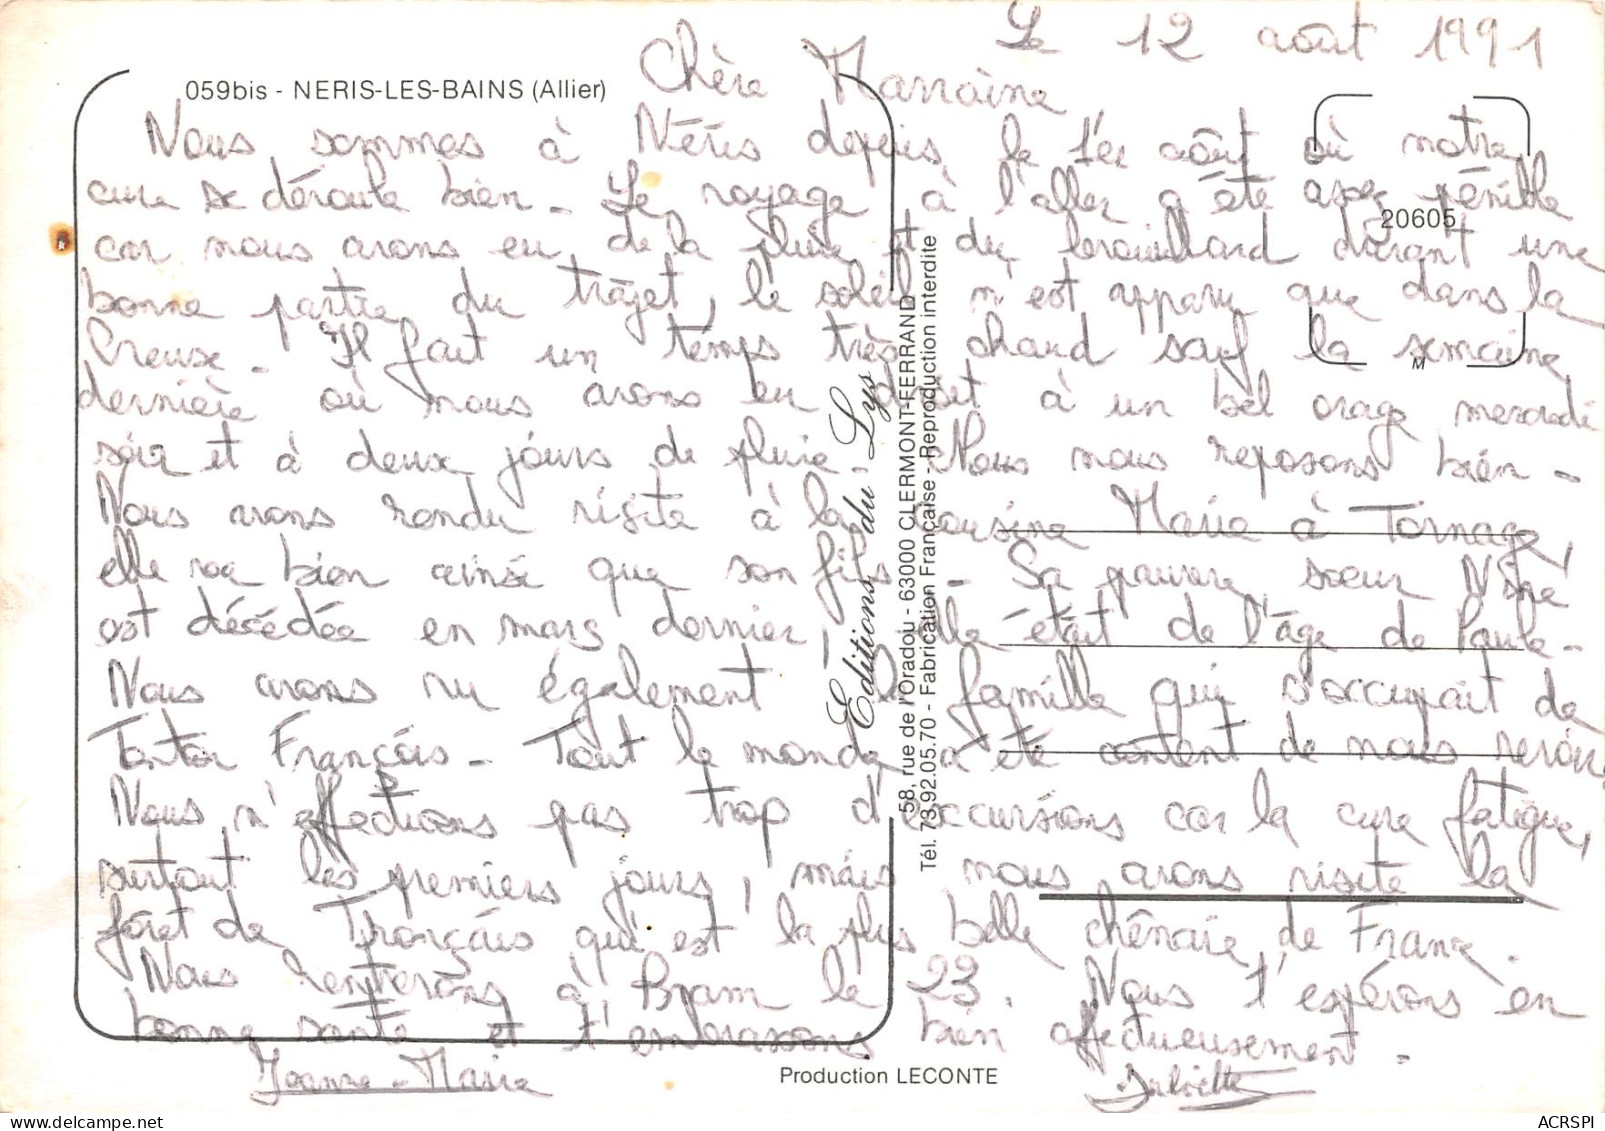 Le 12 août 1991
Chère Marraine
059bis - NERIS-LES-BAINS (Allier)
Nous sommes à Néris depuis le 1er août où notre
cure se déroule bien - Le voyage à l'aller a été assez pénible
20605
car nous avons eu de la pluie et du brouillard durant une
bonne partie du trajet, le soleil n'est apparu que dans la
Creuse - Il fait un temps très chaud sauf la semaine
M
dernière où nous avons eu droit à un bel orage mercredi
soir et à deux jours de pluie. Nous nous reposons bien -
Nous avons rendu visite à la cousine Marie à Tornage,
elle va bien ainsi que son fils - Sa pauvre soeur
est décédée en mars dernier, elle était de l'âge de Paule -
Nous avons vu également la famille qui s'occupait de
Tonton François - Tout le monde a été content de nous revoir
Nous n'effectuons pas trop d'excursions car la cure fatigue,
surtout les premiers jours, mais nous avons visité la
forêt de Tronçais qui est la plus belle chênaie de France.
Nous rentrerons à Bram le 23. Nous t'espérons en
bonne santé et t'embrassons bien affectueusement -
Jeanne-Marie
Juliette
Editions du Lys
58, rue de l'Oradou - 63000 CLERMONT-FERRAND
Tél. 73.92.05.70 - Fabrication Française - Reproduction interdite
Production LECONTE
ACRSPI